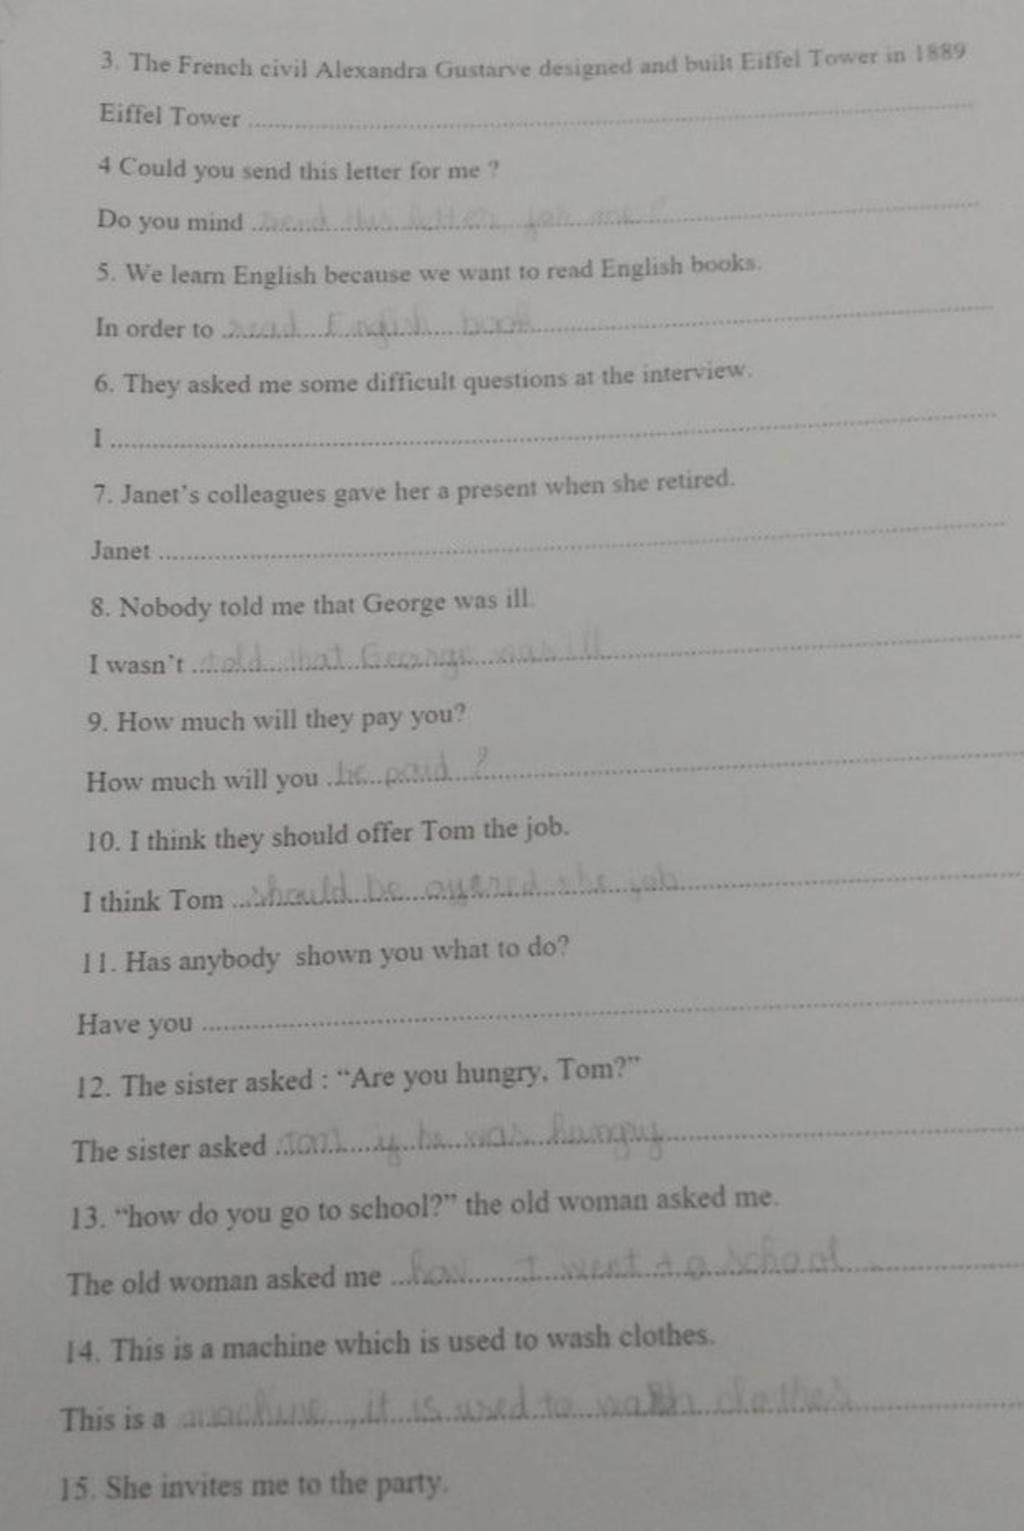 3. The French civil Alexandra Gustarve designed and built Eiffel Tower in 1889
Eiffel Tower ................
4 Could you send this letter for me ?
Do you mind send this letter for me ?
5. We learn English because we want to read English books.
In order to read English book
6. They asked me some difficult questions at the interview.
I ................
7. Janet's colleagues gave her a present when she retired.
Janet ................
8. Nobody told me that George was ill.
I wasn't told that George was ill
9. How much will they pay you?
How much will you be paid ?
10. I think they should offer Tom the job.
I think Tom should be offered the job
11. Has anybody shown you what to do?
Have you ................
12. The sister asked : “Are you hungry, Tom?”
The sister asked Tom if he was hungry
13. “how do you go to school?” the old woman asked me.
The old woman asked me how I went to school
14. This is a machine which is used to wash clothes.
This is a machine, it is used to wash clothes
15. She invites me to the party.